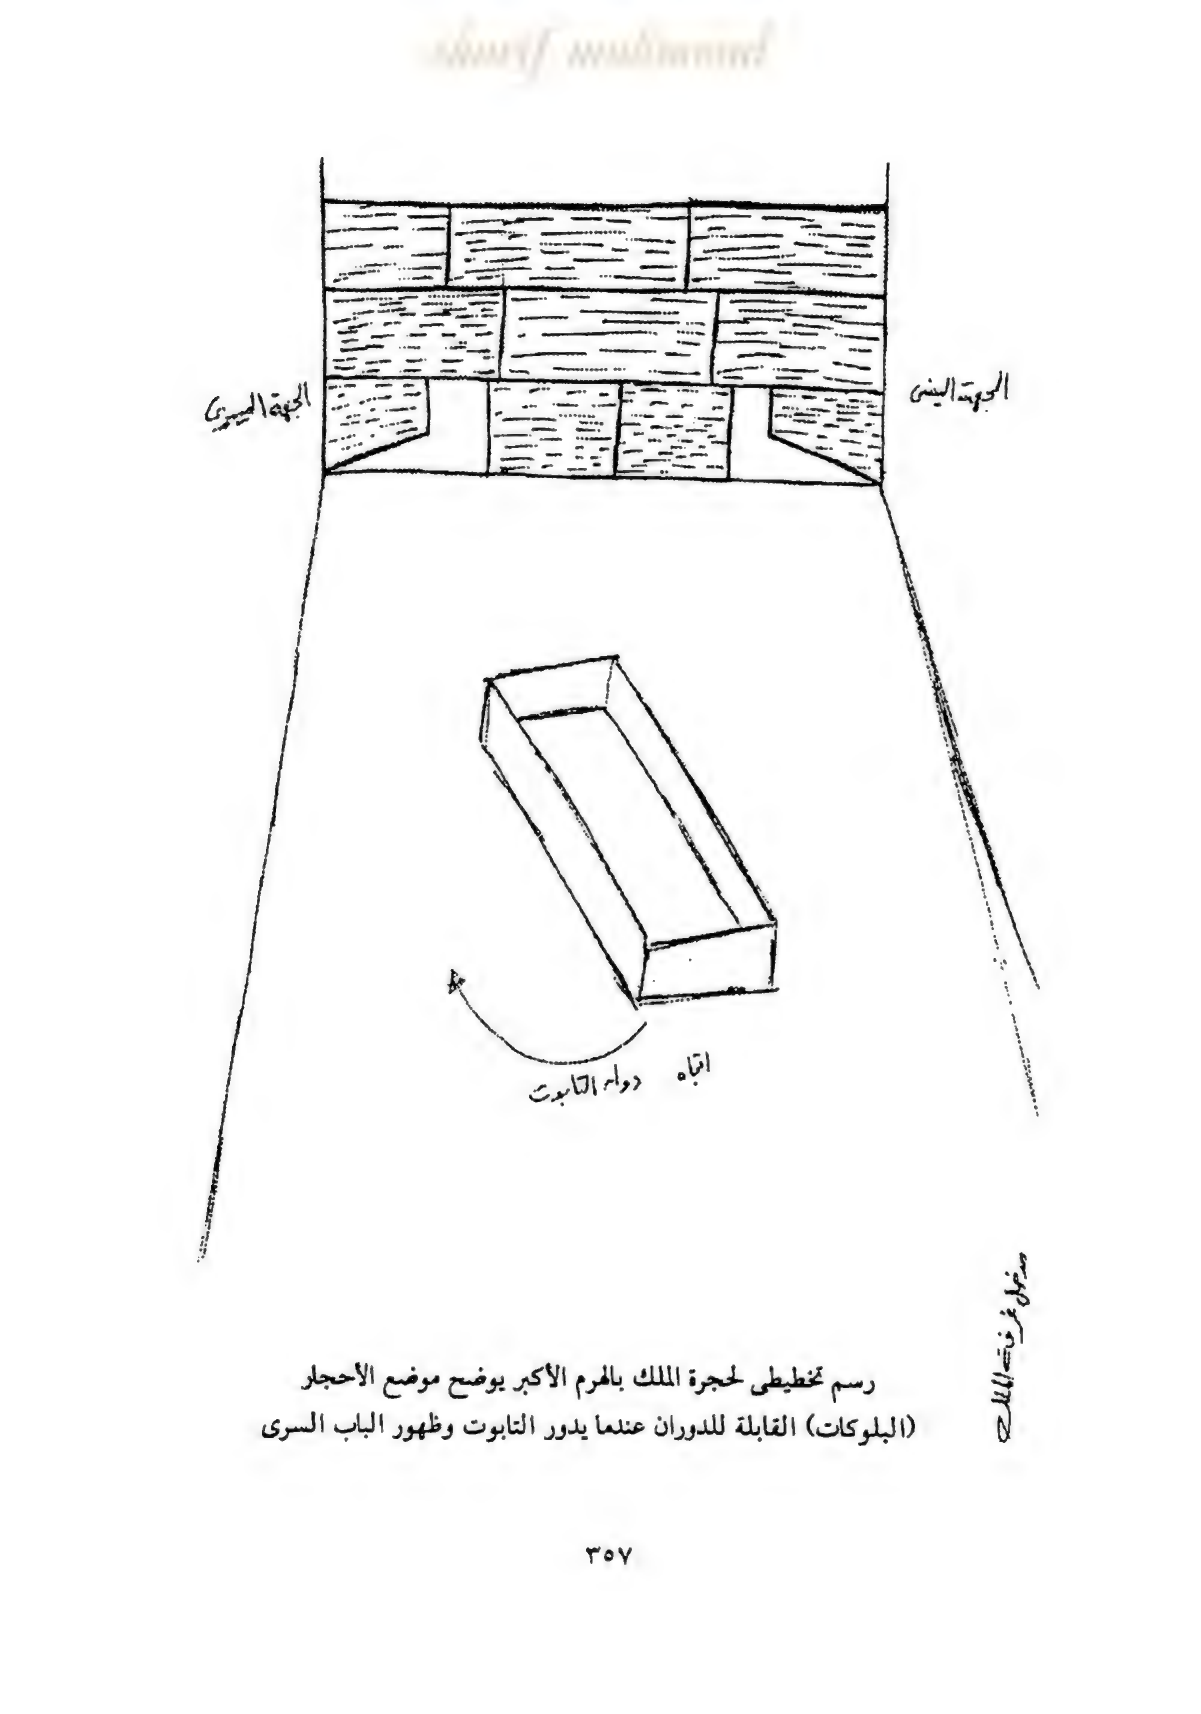 sharif mahmoud
الجهة اليمنى
الجهة اليسرى
اتجاه دوران التابوت
مدخل غرفة الملك
رسم تخطيطى لحجرة الملك بالهرم الأكبر يوضح موضع الأحجار
(البلوكات) القابلة للدوران عندما يدور التابوت وظهور الباب السرى
٣٥٧